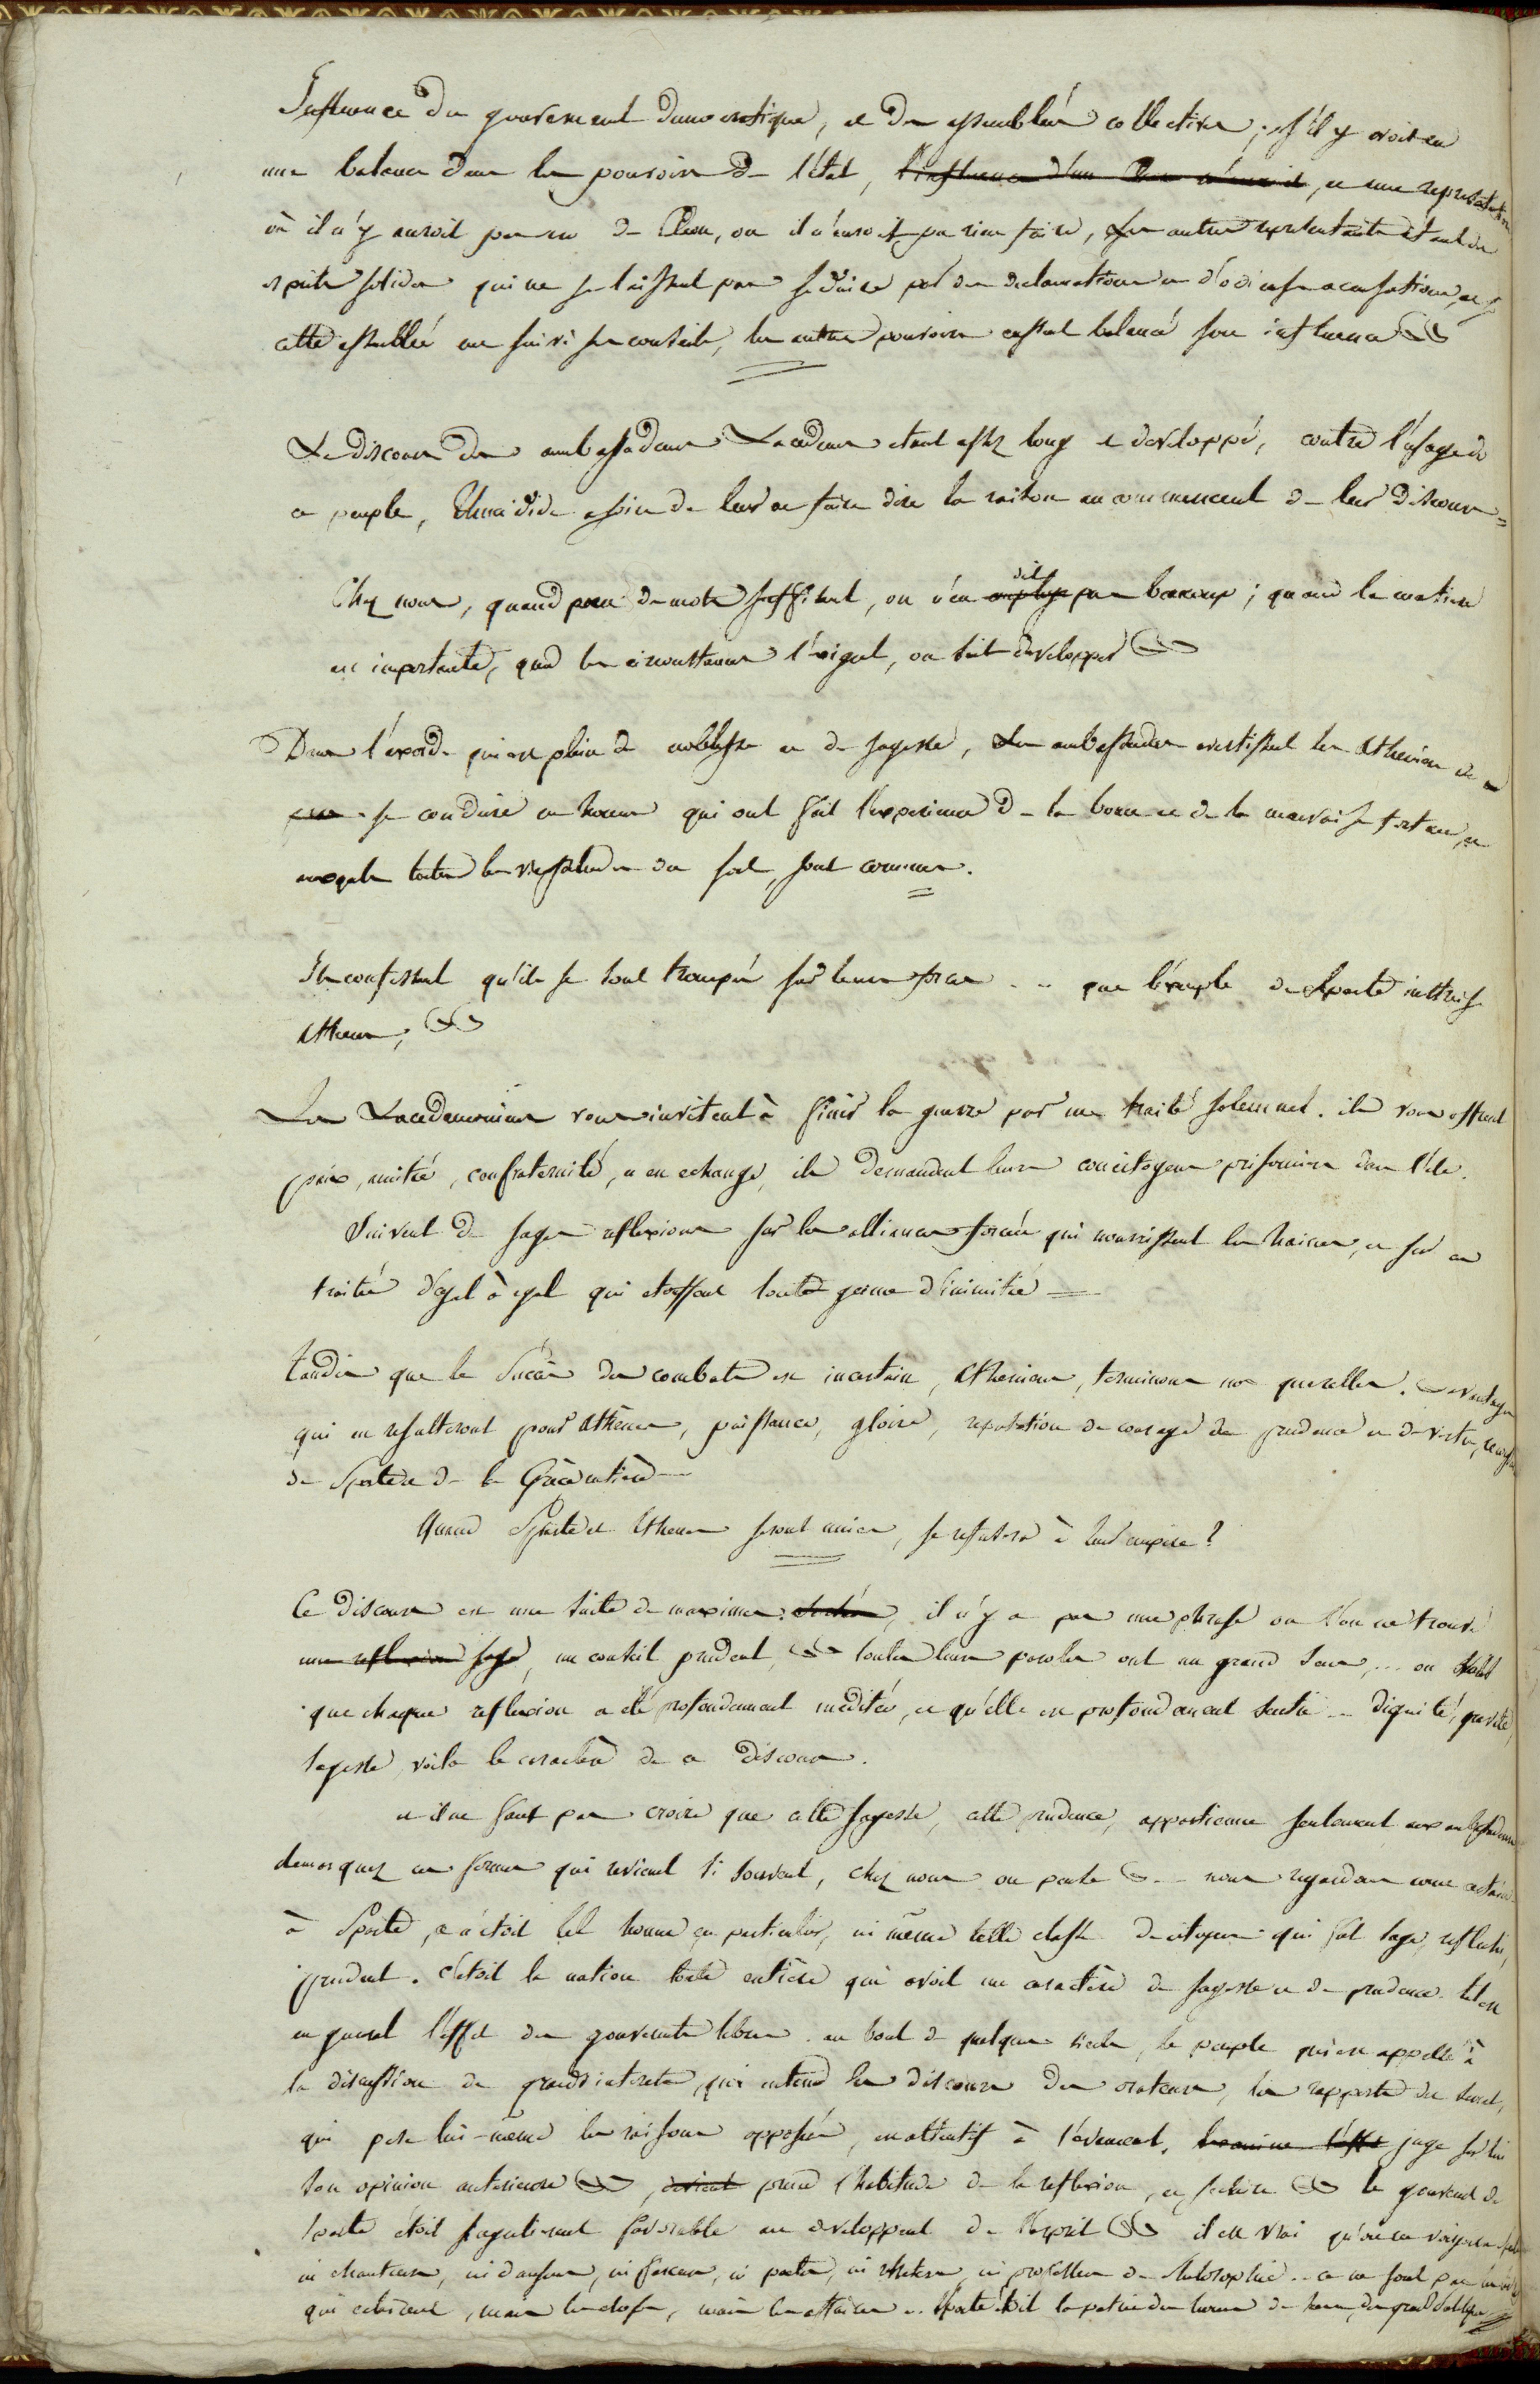 Influence du gouvernement democratique, et des assemblées collectives; s'il y avoit eu
une balance dans les pouvoirs de l'état, l'influence d'un et une representation
où il n'y auroit pas eu de Cleon, ou il n'auroit pu rien faire, les autres representants étant des
esprits solides qui ne se laissent pas seduire par des declamations et d'odieuses accusations, et si
cette assemblée eut suivi ses conseils, les autres pouvoirs eussent balancé son influence
Le discours des ambassadeurs Lacedem etant assez long et developpé, contre l'usage de
ce peuple, Thucidide a soin de leur en faire dire la raison au commencement de leur discours =
Chez nous, quand peu de mots suffisent, on n'en dit pas beaucoup; quand la matiere
est importante, quand les circonstances l'exigent, on sait developper
Dans l'exorde qui est plein de noblesse et de sagesse, les ambassadeurs avertissent les Atheniens de
se conduire en hommes qui ont fait l'experience de la bonne et de la mauvaise fortune, et
auxquels toutes les vicissitudes du sort, sont connues.
Ils confessent qu'ils se sont trompés sur leurs forces .. que l'exemple de Sparte instruise
Athenes,
Les Lacedemoniens vous invitent à finir la guerre par un traité solemnel. ils vous offrent
paix, amitié, confraternité, et en echange, ils demandent leurs concitoyens prisonniers dans l'isle.
Suivent de sages reflexions sur les alliances forcées qui nourrissent les haines, et sur ces
traités d'egal à egal qui etouffent toute germe d'inimitié
Tandis que le succès des combats est incertain, Atheniens, terminons nos querelles. avantages
qui en resulteront pour Athènes, puissance, gloire, reputation de courage de prudence et de vertu,
de Sparte et de la Grèce entière
Quand Sparte et Athenes seront unies, se refusera à leur empire?
Ce discours est une suite de maximes, il n'y a pas une phrase ou l'on ne trouve
une reflexion sage, un conseil prudent, toutes leurs paroles ont un grand sens, ... on
que chaque reflexion a été profondement meditée, et qu'elle est profondement sentie .. dignité, gravité,
sagesse, voila le caractère de ce discours.
et il ne faut pas croire que cette sagesse, cette prudence, appartienne seulement aux ambassadeurs
remarquez ces formes qui revient si souvent, chez nous on pense .. nous regardons comme certain
à Sparte, ce n'étoit tel homme en particulier, ni même telle classe de citoyens qui fut sage, reflechi,
prudent. c'étoit la nation toute entière qui avoit un caractère de sagesse et de prudence. tel est
en general l'effet des gouvernements libres. au bout de quelques siecles, le peuple qui est appellé à
la discussion de grands interets, qui entend les discours des orateurs, les rapports du senat,
qui pese lui-même les raisons opposées, est attentif à l'évenement, juge sur lui
son opinion anterieure, prend l'habitude de la reflexion, et s'eclaire le gouvernement de
Sparte étoit singulierement favorable au developpement de l'esprit il est vrai qu'on ne voyoit
ni chanteurs, ni danseurs, ni farceurs, ni poetes, ni rheteurs, ni professeurs de philosophie .. ce ne sont pas les mots
qui eclairent, mais les choses, mais les affaires .. Sparte étoit la patrie des hommes de sens, des grands